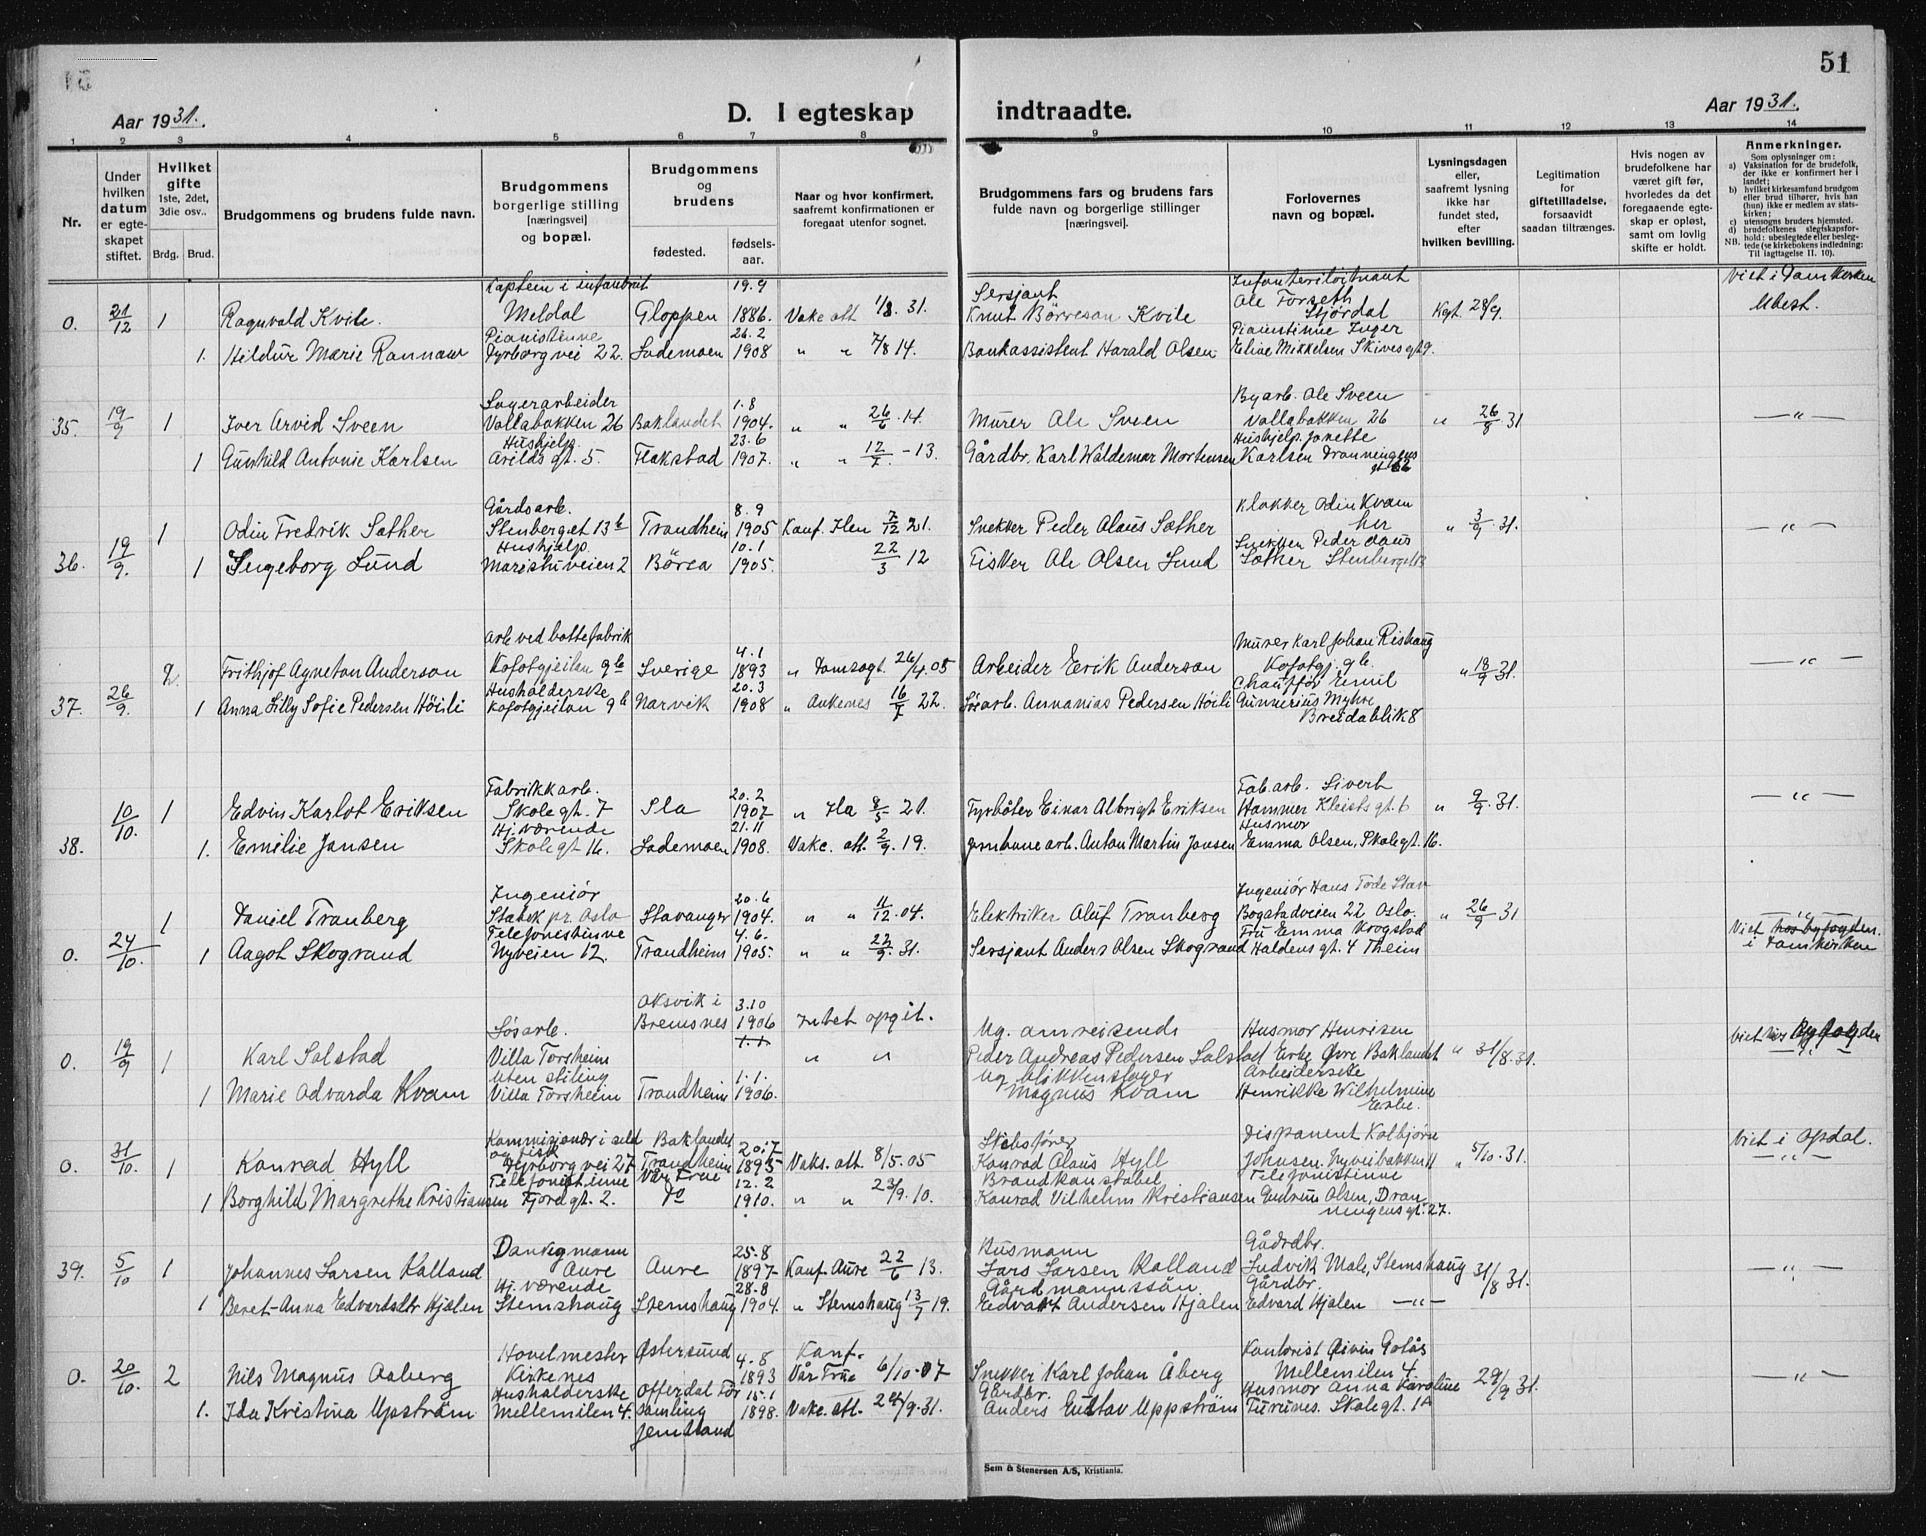 51
Aar 1931.
D. I egteskap indtraadte.
Aar 1931.
1 2 3 4 5 6 7 8 9 10 11 12 13 14
Nr.
Under hvilken datum er egteskapet stiftet.
Hvilket gifte 1ste, 2det, 3die osv..
Brdg. Brud.
Brudgommens og brudens fulde navn.
Brudgommens borgerlige stilling [næringsvei] og bopæl.
Brudgommens og brudens
fødested. fødsels-aar.
Naar og hvor konfirmert, saafremt konfirmationen er foregaat utenfor sognet.
Brudgommens fars og brudens fars fulde navn og borgerlige stillinger [næringsvei].
Forlovernes navn og bopæl.
Lysningsdagen eller, saafremt lysning ikke har fundet sted, efter hvilken bevilling.
Legitimation for giftetilladelse, forsaavidt saadan tiltrænges.
Hvis nogen av brudefolkene har været gift før, hvorledes da det foregaaende egteskap er opløst, samt om lovlig skifte er holdt.
Anmerkninger.
Som oplysninger om:
a) Vaksination for de brudefolk, der ikke er konfirmert her i landet;
b) hvilket kirkesamfund brudgom eller brud tilhører, hvis han (hun) ikke er medlem av statskirken;
c) utensogns bruders hjemsted.
d) brudefolkenes slegtskapsforhold: ubeslegtede eller beslegtede (se kirkebokens indledning:
NB. Til iagttagelse II. 10).
Kaptein i infanteriet 19.9 Sersjant Infanteriløitnant Viet i Domkirken
0. 21/12 1 Ragnvald Kvile. Meldal Gloppen 1886. Vaks att 1/8. 31. Knut Börresen Kvile Ole Forseth Stjørdal Kgt. 28/9. Ubest.
Pianistinne 26.2 Pianistinne Inger
1. Hildur Marie Rannaw Dyrborgvei 22. Lademoen 1908 " " 7/8 14. Bankassistent Harald Olsen Eline Mikkelsen Skivesgt 9.
Lagerarbeider 1.8 Byarb. Ole Sveen
35. 19/9 1 Iver Arvid Sveen Vollabakken 26 Baklandet 1904. " " 26/6 14. Murer Ole Sveen Vollabakken 26 " 26/8 31 —"—
Hushjelp 23.6 Hushjelp Jonette
1 Gunhild Antonie Karlsen Arildsgt. 5. Flakstad 1907. " " 12/7 - 13. Gårdbr. Karl Waldemar Mortensen Karlsen Dronningens gt
Gårdsarb. 8.9 Klokker Odin Kvam
1 Odin Fredrik Sæther Stenberget 13b Trondheim 1905 Konf. Ilen 7/12 21. Snekker Peder Olaus Sæther her " 3/9 31. —"—
Hushjelp 10.1 Snekker Peder Olaus
36. 19/9. 1 Ingeborg Lund 2 Börsa 1905. 22/3 12 Fisker Ole Olsen Lund Sæther Stenberget 13
Arb ved hattefabrik 4.1 Murer Karl Johan Rishaug
2. Frithjof Agneton Anderson Kofotgjeilan 9b Sverige 1893 " Domsogt. 26/4. 05 Arbeider Erik Anderson Kofotgj. 9b. " 18/9 31. —"—
Husholderske 20.3 Chauffør Emil
37. 26/9. 1 Anna Lilly Sofie Pedersen Höili Kofotgjeilan 9b Narvik 1908 " Ankenes 16/7 22. Løsarb. Annanias Pedersen Höili Gunnerius Myhre
Breidablik 8
Fabrikkarb. 20.2 Fab. arb. Sivert
10/10. 1 Edvin Karlot Eriksen Skolegt. 7 Ila 1907 " Ila 8/5 21. Fyrböter Einar Albrigt Eriksen Hammer Kleistsgt. 6 " 9/9. 31. —"—
Hj. værende 21.11 Husmor
38. 1. Emelie Jansen Skolegt 16. Lademoen 1908. Vaks. att. 2/9. 19. Jernbane arb. Anton Martin Jansen Emma Olsen, Skolegt. 16.
Ingeniør 20.6 Ingeniør Hans Tode Stav
1 Daniel Tranberg Stabek pr. Oslo Stavanger 1904. " " 11/12. 04. Elektriker Oluf Tranberg Bogstadveien 22 Oslo. " 26/9 31 —"—
Telefonistinne 4.6. Fru Emma Krogstad Viet hos byfogden.
0. 24/10. 1 Aagot Skogrand Nyveien 12. Trondheim 1905. " " 22/9. 31. Sersjant Anders Olsen Skogrand Haldensgt. 4 Theim i Domkirken
Oksvik i 3.10
Løsarb. Bremsnes 1906 Intet opgit. Ug. omreisende Husmor Henrisen Viet hos Byfogden
0. 19/9 1 Karl Solstad Villa Torsheim 1.1 " " Peder Andreas Pedersen Solstad Eirbe Øvre Baklandet " 31/8. 31. —"—
Uten stiling 1.1. Ug blikkenslager Arbeiderske
1 Marie Odvarda Kvam Villa Torsheim Trondheim 1906. Magnus Kvam Henrikke Wilhelmine
Eirbe.
Kommisjonær i sild og fisk Baklandet 20.7 Skibsfører Disponent Kolbjørn Viet i Opdal.
0. 31/10. 1 Konrad Hyll Dyrborgvei 27 Trondheim 1895 Vaks. att. 8/5. 05 Konrad Olaus Hyll Johnsen. Nyveibakken 11 " 5/10. 31. —"—
Telefonistinne Vår Frue 12.2 Brandkonstabel Telefonistinne
1 Borghild Margrethe Kristiansen Fjordgt. 2. Do 1910. " " 23/9. 10. Konrad Vilhelm Kristiansen Gudrun Olsen, Dronningensgt. 27.
Danksgmann 25.8 Husmann Gårdbr.
39. 5/10 1 Johannes Larsen Kalland Aure Aure 1897 Konf. Aure 22/6 13. Lars Larsen Kalland Ludvik Male, Stemshaug 31/8 31. —"—
Hj. værende 28.8 Gårdmannssön Gårdbr.
1 Beret-Anna Edvardsdtr Hjelen Stemshaug Stemshaug 1904. " Stemshaug 13/7 19. Edvart Andersen Hjalen Edvard Hjelen —"—
Hovelmester Østersund 4.8 Konf. Kontorist Øivin Golås
0. 20/10. 2 Nils Magnus Aaberg Kirkenes 1893 Vår Frue 6/10. 07 Snekker Karl Johan Åberg Mellemilen 4. 29/9 31. —"—
Husholderske Offerdal For 15.1 Gårdbr. Husmor Anna Karoline
1. Ida Kristina Upström Mellemilen 4. samling 1898. Vaks. att. 24/9. 31. Anders Gustav Uppström Furunes. Skolegt. 1A
Jemtland
Sem & Stenersen A/S, Kristiania.